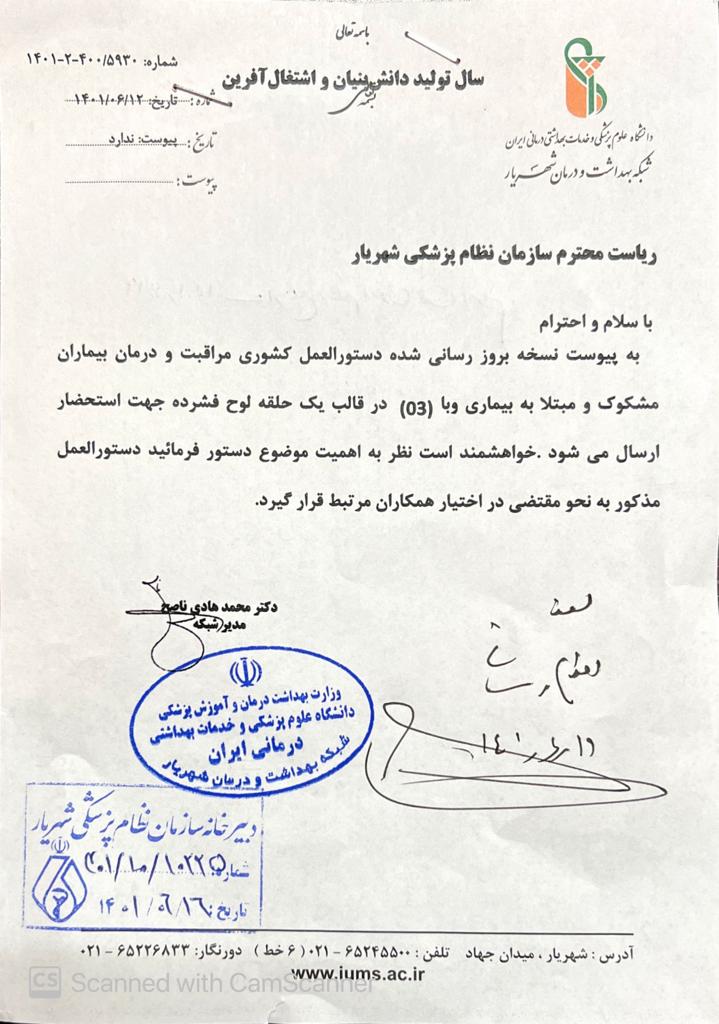 باسمه تعالی
شماره: ۱۴۰۱-۲-۴۰۰/۵۹۳۰
سال تولید دانش بنیان و اشتغال آفرین
شماره:
تاریخ: ۱۴۰۱/۰۶/۱۲
تاریخ:
پیوست: ندارد
پیوست:
دانشگاه علوم پزشکی و خدمات بهداشتی درمانی ایران
شبکه بهداشت و درمان شهریار
ریاست محترم سازمان نظام پزشکی شهریار
با سلام و احترام
به پیوست نسخه بروز رسانی شده دستورالعمل کشوری مراقبت و درمان بیماران
مشکوک و مبتلا به بیماری وبا (03) در قالب یک حلقه لوح فشرده جهت استحضار
ارسال می شود .خواهشمند است نظر به اهمیت موضوع دستور فرمائید دستورالعمل
مذکور به نحو مقتضی در اختیار همکاران مرتبط قرار گیرد.
دکتر محمد هادی ناصح
مدیر شبکه
وزارت بهداشت درمان و آموزش پزشکی
دانشگاه علوم پزشکی و خدمات بهداشتی
درمانی ایران
شبکه بهداشت و درمان شهریار
دبیرخانه سازمان نظام پزشکی شهریار
شماره: ۴۰۱/۱۰/۱۰۲۲۵
تاریخ: ۱۴۰۱/۰۶/۱۶
آدرس : شهریار ، میدان جهاد تلفن : ۶۵۲۴۵۵۰۰ - ۰۲۱ ( ۶ خط ) دورنگار: ۶۵۲۲۶۸۳۳ - ۰۲۱
www.iums.ac.ir
CS Scanned with CamScanner